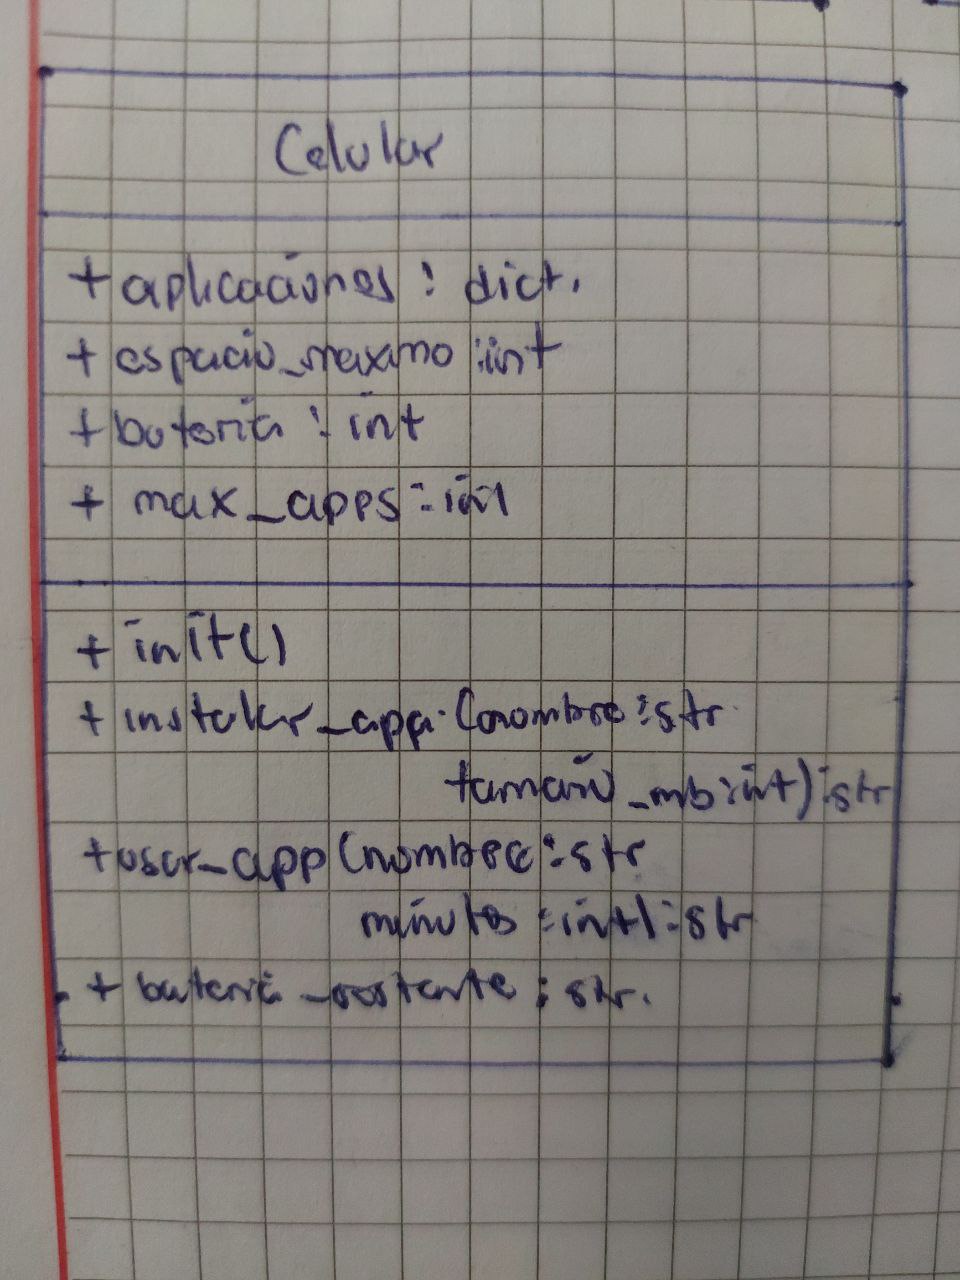 Celular
+ aplicaciones : dict.
+ espacio_maximo : int
+ bateria : int
+ max_apps : int
+ init()
+ instalar_app (nombre : str
tamaño_mb : int) : str
+ usar_app (nombre : str
minutos : int) : str
+ bateria_restante : str.